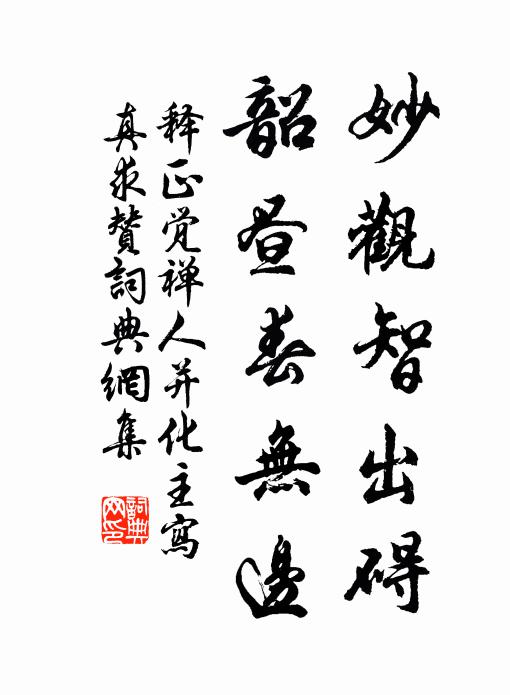 妙觀智出碍
韶昼春無邊
释正觉禅人并化主寫
真求賛詞典網集
詞典